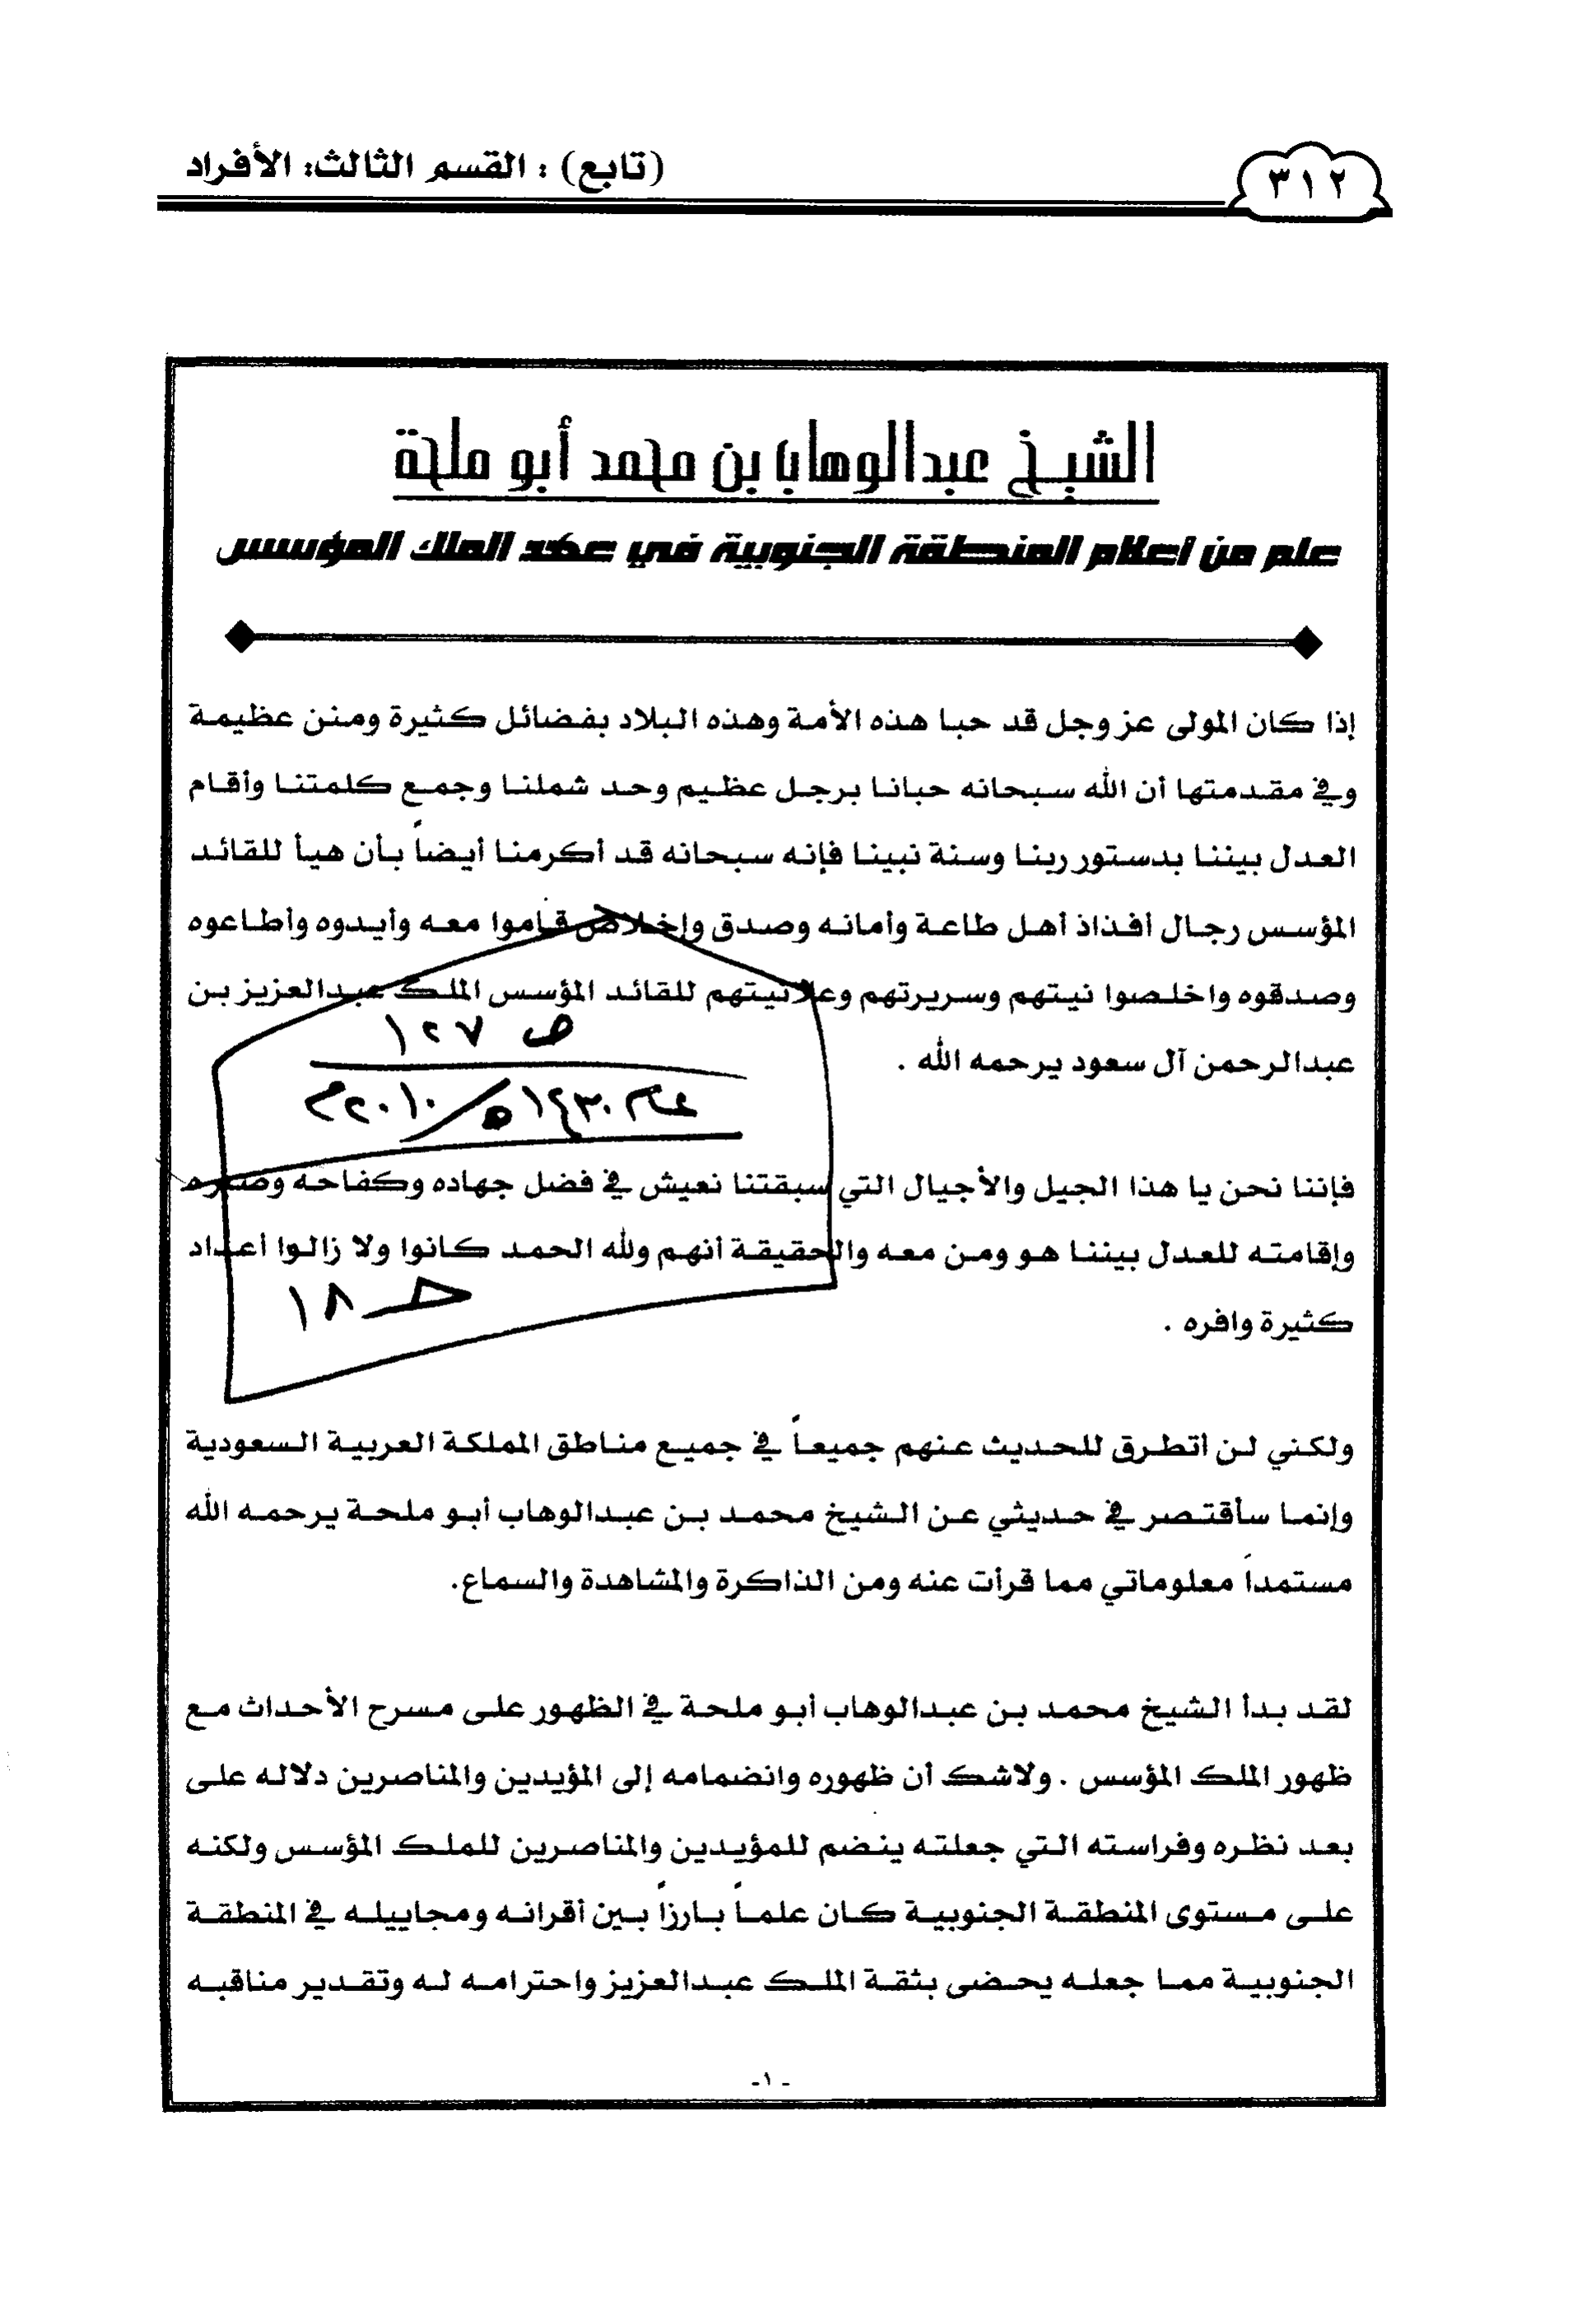 ٣١٢
(تابع) : القسم الثالث: الأفراد
الشيخ عبدالوهاب بن محمد أبو ملحة
علم من أعلام المنطقة الجنوبية في عهد الملك المؤسس
إذا كان المولى عز وجل قد حبا هذه الأمة وهذه البلاد بفضائل كثيرة ومنن عظيمة
وفي مقدمتها أن الله سبحانه حبانا برجل عظيم وحد شملنا وجمع كلمتنا وأقام
العدل بيننا بدستور ربنا وسنة نبينا فإنه سبحانه قد أكرمنا أيضاً بأن هيأ للقائد
المؤسس رجال أفذاذ أهل طاعة وأمانه وصدق وإخلاص قاموا معه وأيدوه وأطاعوه
وصدقوه واخلصوا نيتهم وسريرتهم وعلانيتهم للقائد المؤسس الملك عبدالعزيز بن
عبدالرحمن آل سعود يرحمه الله .
ص ١٢٧
عام ١٤٣٠هـ/٢٠١٠م
فإننا نحن يا هذا الجيل والأجيال التي سبقتنا نعيش في فضل جهاده وكفاحه وصبره
وإقامته للعدل بيننا هو ومن معه والحقيقة أنهم ولله الحمد كانوا ولا زالوا أعداد
كثيرة وافره .
حـ ١٨
ولكني لن أتطرق للحديث عنهم جميعاً في جميع مناطق المملكة العربية السعودية
وإنما سأقتصر في حديثي عن الشيخ محمد بن عبدالوهاب أبو ملحة يرحمه الله
مستمداً معلوماتي مما قرأت عنه ومن الذاكرة والمشاهدة والسماع.
لقد بدأ الشيخ محمد بن عبدالوهاب أبو ملحة في الظهور على مسرح الأحداث مع
ظهور الملك المؤسس . ولاشك أن ظهوره وانضمامه إلى المؤيدين والمناصرين دلاله على
بعد نظره وفراسته التي جعلته ينضم للمؤيدين والمناصرين للملك المؤسس ولكنه
على مستوى المنطقة الجنوبية كان علماً بارزاً بين أقرانه ومجاييله في المنطقة
الجنوبية مما جعله يحضى بثقة الملك عبدالعزيز واحترامه له وتقدير مناقبه
- ١-